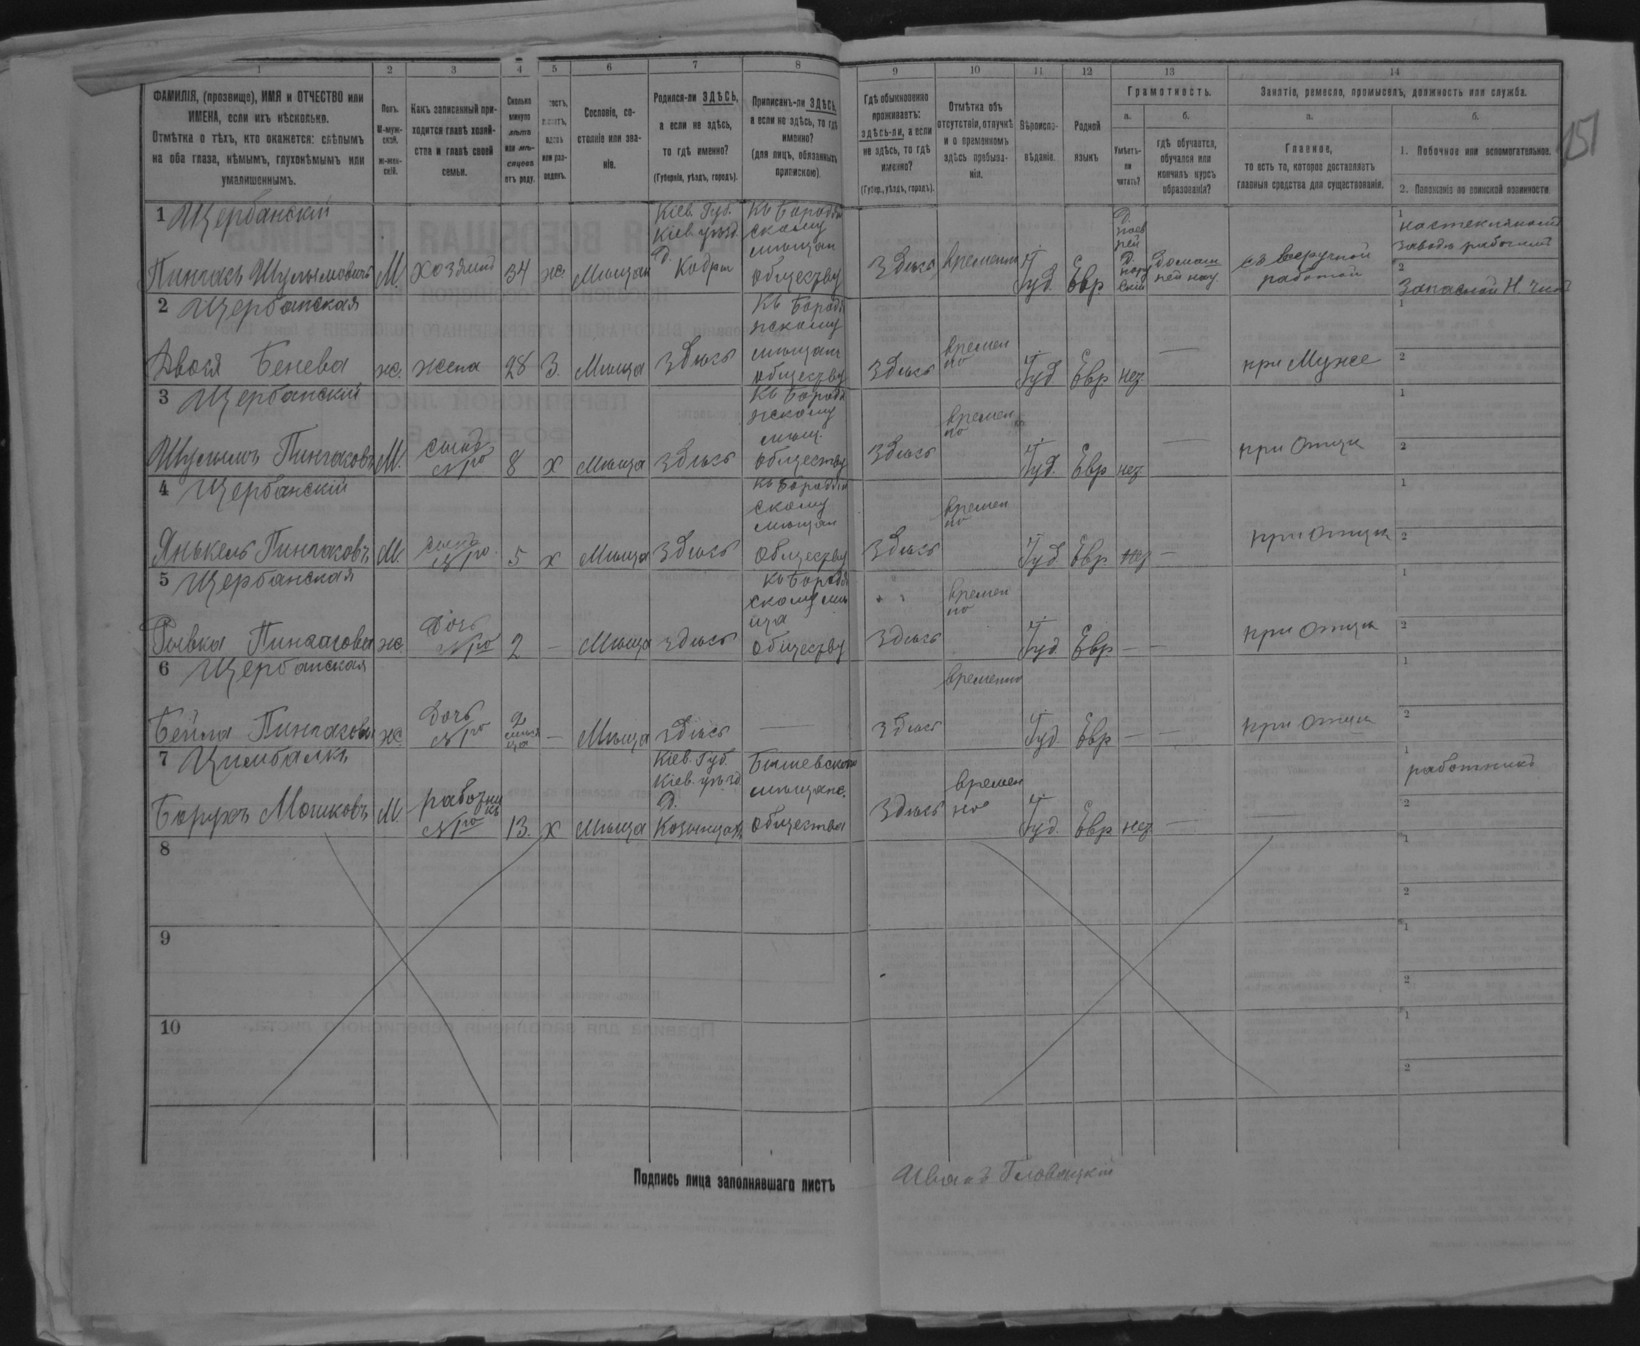 1 2 3 4 5 6 7 8 9 10 11 12 13 14
ФАМИЛІЯ, (прозвище), ИМЯ и ОТЧЕСТВО или
ИМЕНА, если ихъ нѣсколько.
Отмѣтка о тѣхъ, кто окажется: слѣпымъ
на оба глаза, нѣмымъ, глухонѣмымъ или
умалишеннымъ.
Полъ.
М-муж-
ской.
ж-жен-
скій.
Какъ записанный при-
ходится главѣ хозяй-
ства и главѣ своей
семьи.
Сколько
минуло
лѣтъ
или мѣ-
сяцевъ
отъ роду.
или раз-
веденъ.
Сословіе, со-
стояніе или зва-
ніе.
Родился-ли ЗДѢСЬ,
а если не здѣсь,
то гдѣ именно?
(Губернія, уѣздъ, городъ).
Приписанъ-ли ЗДѢСЬ,
а если не здѣсь, то гдѣ
именно?
(для лицъ, обязанныхъ
припискою).
Гдѣ обыкновенно
проживаетъ:
здѣсь-ли, а если
не здѣсь, то гдѣ
именно?
(Губер., уѣздъ, городъ).
Отмѣтка объ
отсутствіи, отлучкѣ
и о временномъ
здѣсь пребыва-
ніи.
Вѣроиспо-
вѣданіе.
Родной
языкъ
Грамотность.
а.
Умѣетъ-
ли
читать?
б.
гдѣ обучается,
обучался или
кончилъ курсъ
образованія?
Занятіе, ремесло, промыселъ, должность или служба.
а.
Главное,
то есть то, которое доставляетъ
главныя средства для существованія.
б.
1. Побочное или вспомогательное.
2. Положеніе по воинской повинности
151
1 Щербанскій
Пинхасъ Шулымовичъ М. хозяинъ 34 ж Мѣщан
Кіев. Губ.
Кіев. уѣзд.
д. Кодры
Къ Бородян
скому
мѣщан
обществу
Здѣсь временно Іуд. Евр
Домаш
ней
работой
1
заводѣ рабочій
2
Запасной Н. Чинъ
2 Щербанская
Двося Бенева ж. жена 28 З. Мѣща Здѣсь
Къ Бородя
нскому
мѣщан
обществу
Здѣсь
времен
но
Іуд. Евр нез — при Мужѣ
1
2
3 Щербанскій
Шулымъ Пинхасовъ М.
сынъ
№ 1го
8 х Мѣща Здѣсь
Къ Бородя
нскому
мѣщ.
обществу
Здѣсь
времен
но
Іуд. Евр нез — при Отцѣ
1
2
4 Щербанскій
Янькель Пинхасовъ М.
сынъ
№ 1го
5 х Мѣща Здѣсь
Къ Бородян
скому
мѣщан
обществу
Здѣсь
времен
но
Іуд Евр нез — при Отцѣ
1
2
5 Щербанская
Рывка Пинхасова ж
Дочь
№ 1го
2 — Мѣща Здѣсь
Къ Бородя
скому мѣ
ща
обществу
Здѣсь
времен
но
Іуд. Евр — — при Отцѣ
1
2
6 Щербанская
Бейла Пинхасова ж
Дочь
№ 1го
2
мѣся
ца
— Мѣща Здѣсь — Здѣсь временно Іуд. Евр — — при Отцѣ
1
2
7 Цимбалъ
Борухъ Мошковъ М.
работни
къ
№ 1го
13 х Мѣща
Кіев. Губ.
Кіев. уѣзд
д.
Бышевскаго
мѣщанс.
общества
Здѣсь
времен
но
Іуд. Евр нез — —
1
работникъ
2
8
1
2
9
1
2
10
1
2
Подпись лица заполнявшаго листъ Иванъ Головацкій